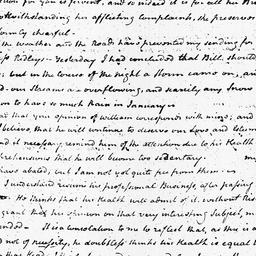 ation for you is fervent, and so indeed it is for all her B
otwithstanding her afflicting complaints, she preserves
formly chearful.
the weather and the Roads have prevented my sending for
ss Ridleys - Yesterday I had concluded that Bill should
; but in the course of the night a storm came on, an
d our streams are overflowing, and scarcely any snow
on to have so much Rain in January -
at that your opinion of William corresponds with mine; and
believe, that he will continue to deserve our Love and Esteem
nd it necessary remind him of the attention due to his Health
prehensions that he will become too sedentary. my
have abated, but I am not yet quite free from them -
I understand resume his professional Business, after passing
He thinks that his Health will admit of it, without Ris
grant that her opinion on that very interesting Subject, m
nded - It is a consolation to me to reflect that, as this is a
d not of necessity, he doubtless thinks his Health is equal t